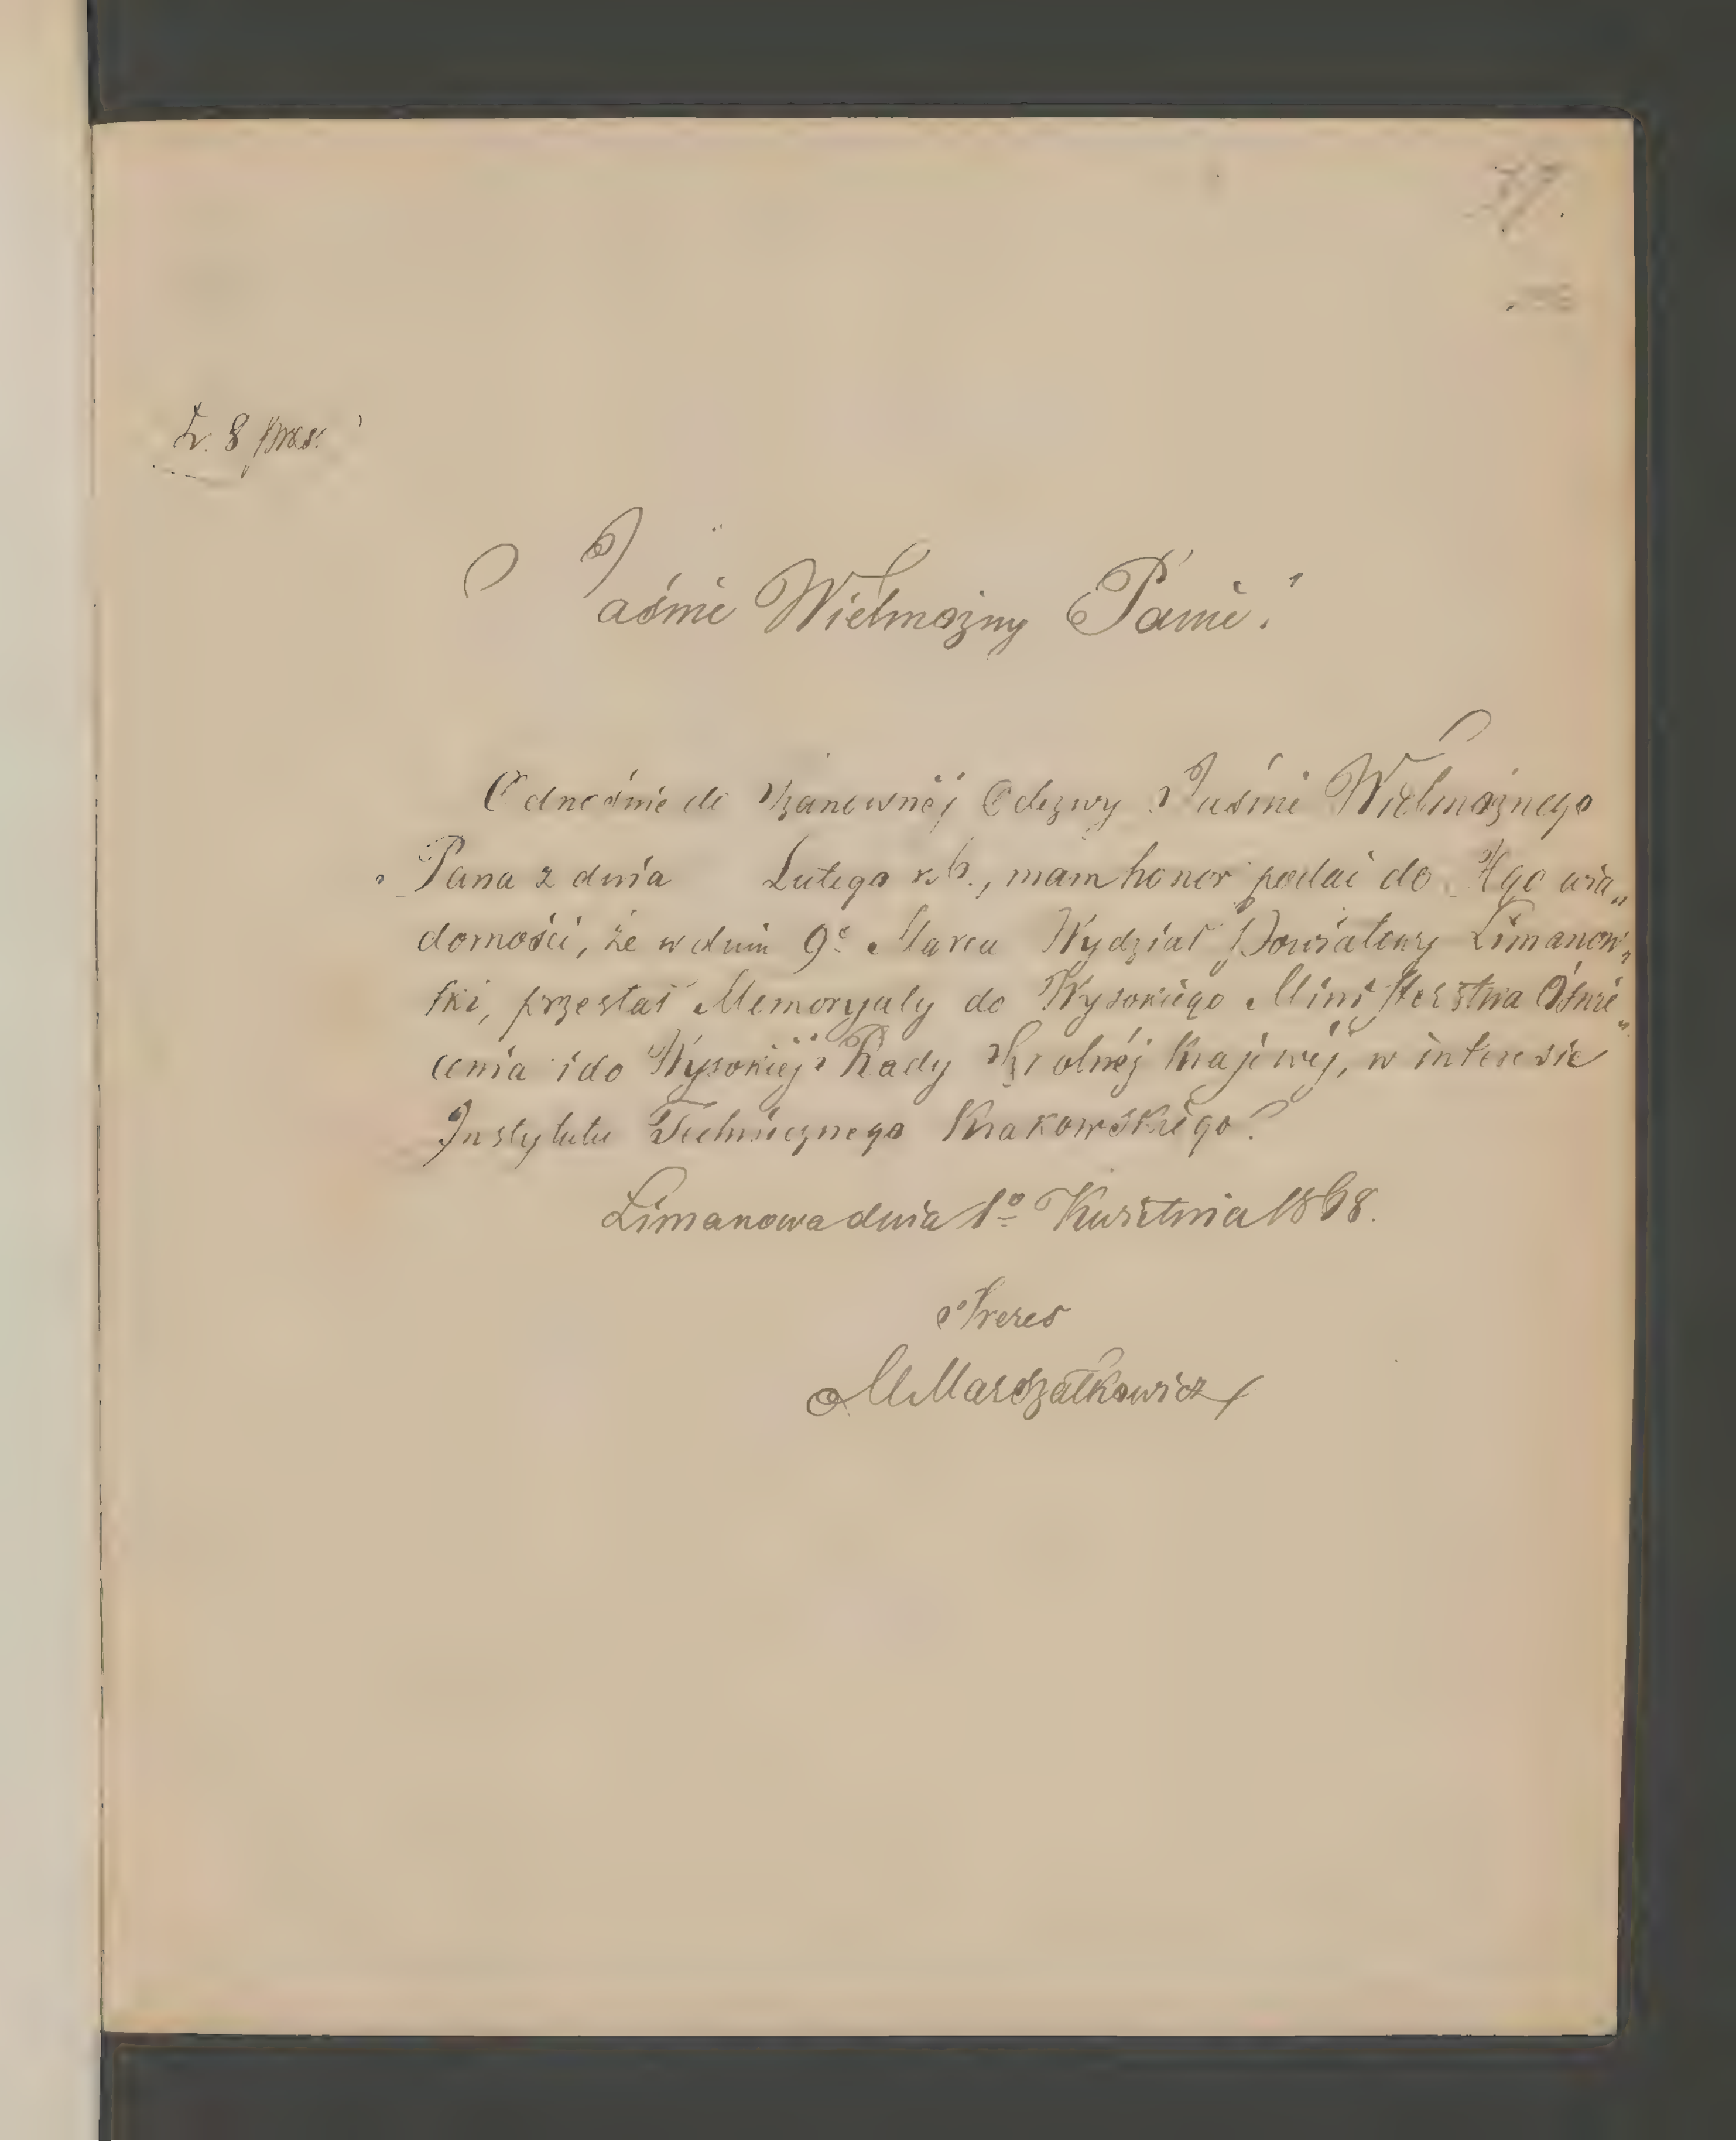 L. 8 prez.
Jaśnie Wielmożny Panie!
Odnośnie do Szanownéj Odezwy Jaśnie Wielmożnego
Pana z dnia Lutego r. b., mam honor podać do Jego wia„
domości, że w dniu 9º Marca Wydział Powiatowy Limanow„
ski, przesłał Memoryały do Wysokiego Ministerstwa Oświe„
cenia i do Wysokiéj Rady Szkolnéj Krajowéj, w interesie
Instytutu Technicznego Krakowskiego.
Limanowa dnia 1º Kwietnia 1868.
Prezes
MMarszałkowicz